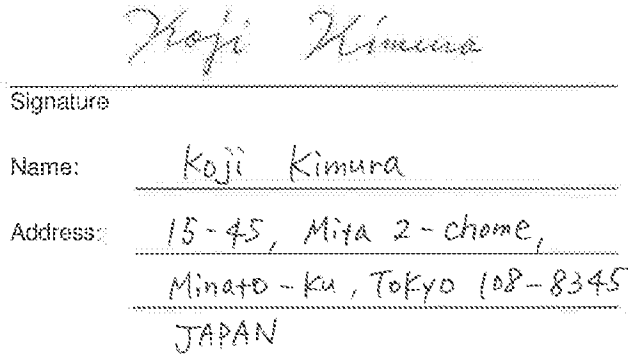 Koji Kimura
Signature
Name: Koji Kimura
Address: 15-45, Mita 2-chome,
Minato-ku, Tokyo 108-8345
JAPAN